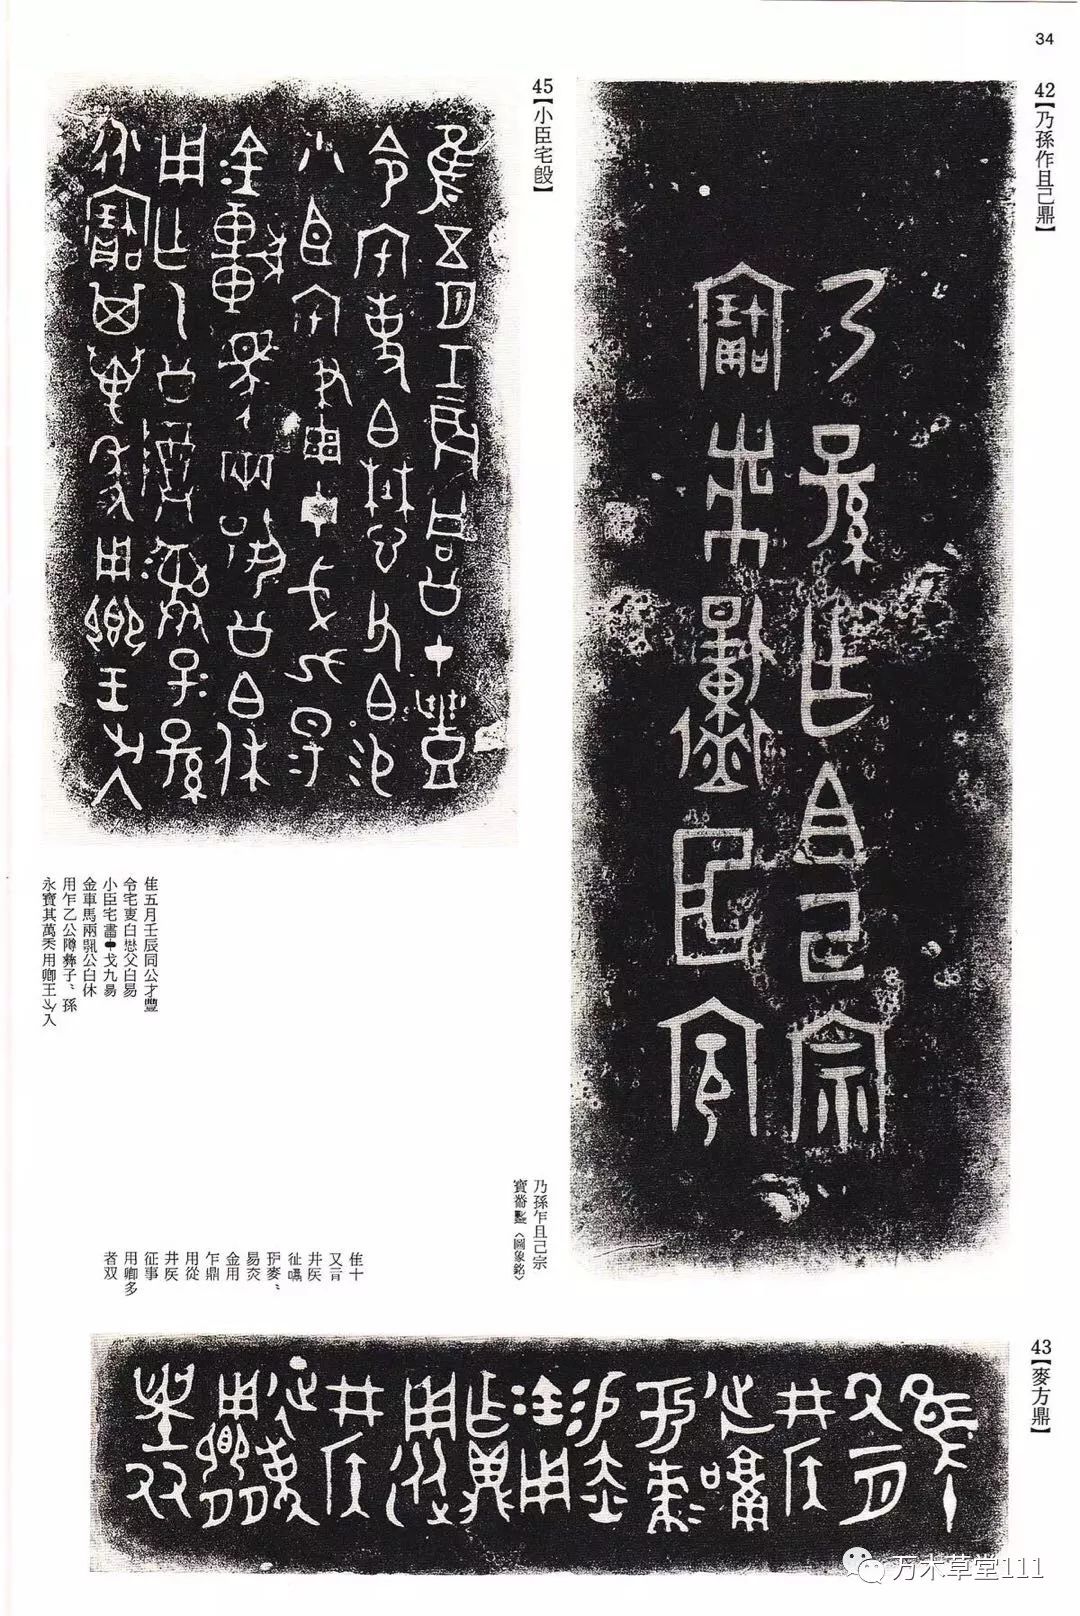 34
42【乃孫作且己鼎】
乃孫乍且己宗
寶黹𩰬〈圖象銘〉
45【小臣宅𣪘】
隹五月壬辰同公才豐
令宅事白懋父白易
小臣宅畫▮戈九易
金車馬兩䚄公白休
用乍乙公䵼彝子〻孫
永寶其萬年用卿王出入
43【麥方鼎】
隹十
又一月
井𥎦
征𠾅
𢓊麥〻
易赤
金用
乍鼎
用從
井𥎦
征事
用卿多
者友
万木草堂111